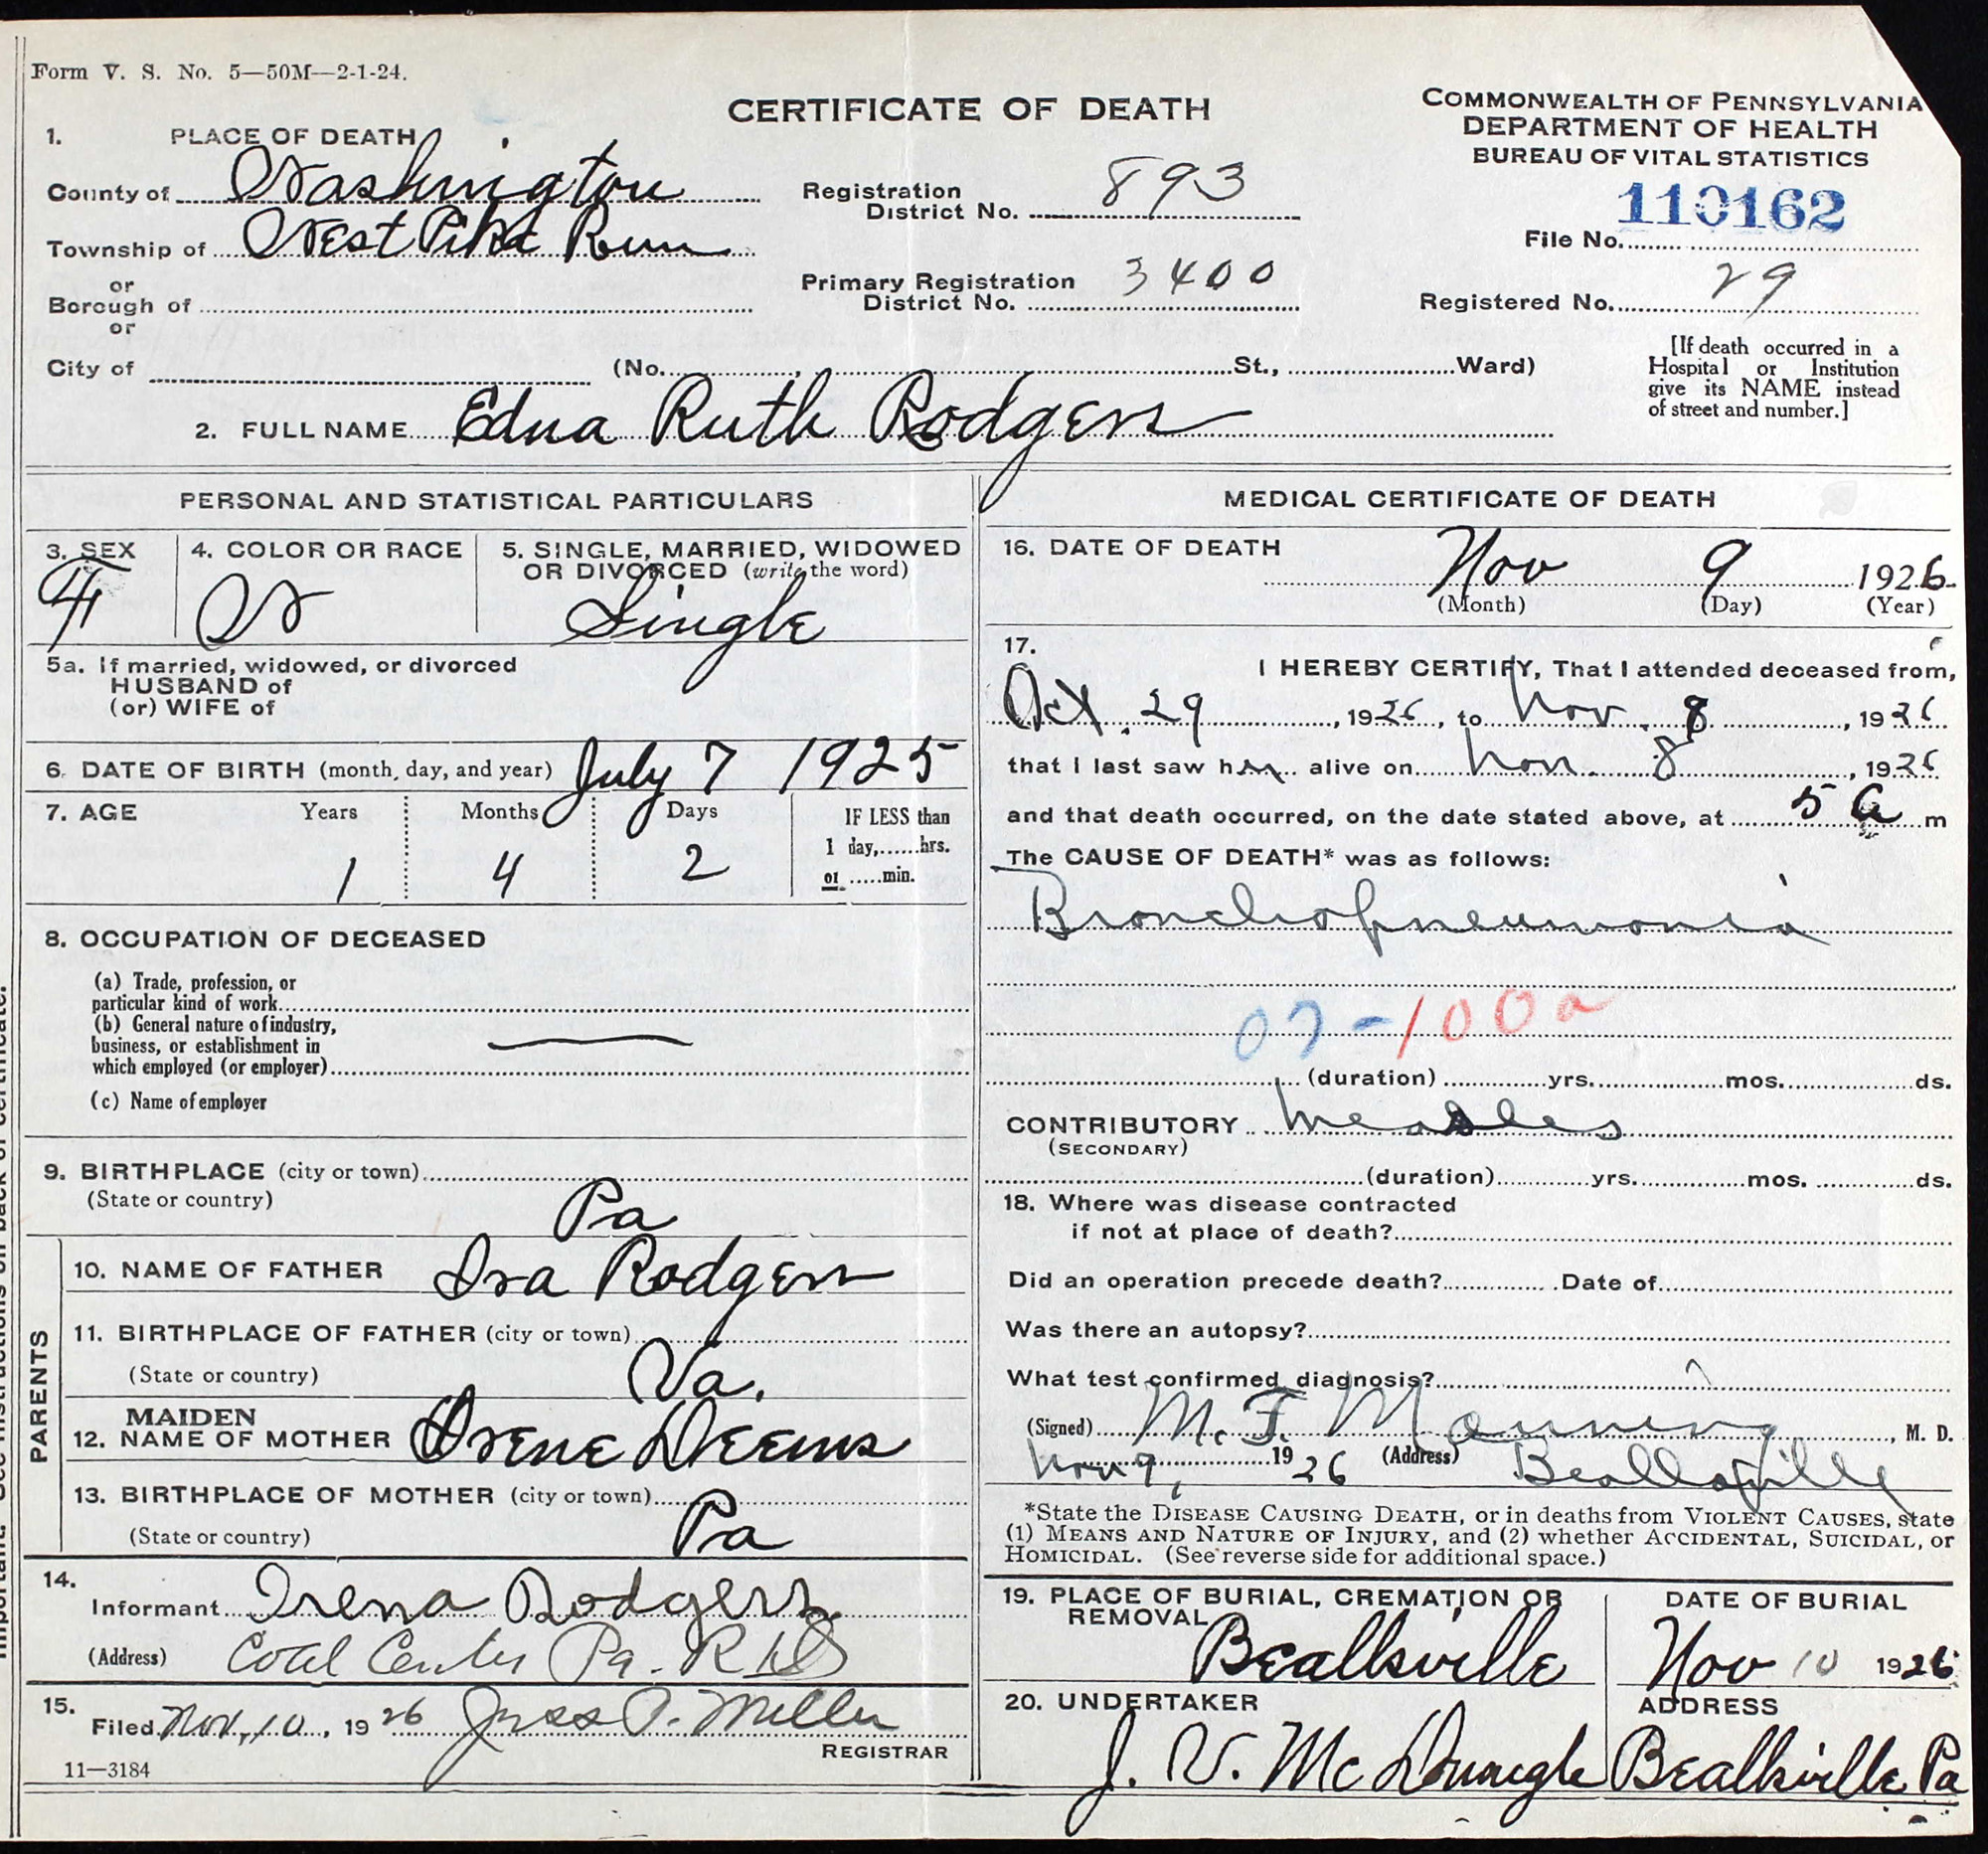 Form V. S. No. 5—50M—2-1-24.
CERTIFICATE OF DEATH
COMMONWEALTH OF PENNSYLVANIA
DEPARTMENT OF HEALTH
BUREAU OF VITAL STATISTICS
1. PLACE OF DEATH
County of Washington
Township of West Pike Run
or
Borough of
or
City of (No. , St., Ward)
Registration District No. 893
Primary Registration District No. 3400
110162
File No.
Registered No. 29
[If death occurred in a
Hospital or Institution
give its NAME instead
of street and number.]
2. FULL NAME Edna Ruth Rodgers
PERSONAL AND STATISTICAL PARTICULARS
3. SEX F
4. COLOR OR RACE W
5. SINGLE, MARRIED, WIDOWED
OR DIVORCED (write the word)
Single
5a. If married, widowed, or divorced
HUSBAND of
(or) WIFE of
6. DATE OF BIRTH (month, day, and year) July 7 1925
7. AGE Years Months Days IF LESS than
1 day, hrs.
or min.
1 4 2
8. OCCUPATION OF DECEASED
(a) Trade, profession, or
particular kind of work
(b) General nature of industry,
business, or establishment in
which employed (or employer)
(c) Name of employer
9. BIRTHPLACE (city or town)
(State or country) Pa
PARENTS
10. NAME OF FATHER Ira Rodgers
11. BIRTHPLACE OF FATHER (city or town)
(State or country) Va.
12. MAIDEN NAME OF MOTHER Irene Deems
13. BIRTHPLACE OF MOTHER (city or town)
(State or country) Pa
14.
Informant Irena Rodgers
(Address) Coal Center Pa. R
15.
Filed Nov, 10, 1926 Jess P. Miller
REGISTRAR
11—3184
MEDICAL CERTIFICATE OF DEATH
16. DATE OF DEATH
Nov 9 1926
(Month) (Day) (Year)
17.
I HEREBY CERTIFY, That I attended deceased from,
Oct. 29, 1926, to Nov. 8, 1926
that I last saw her alive on Nov. 8, 1926
and that death occurred, on the date stated above, at 5 a m
The CAUSE OF DEATH* was as follows:
Bronchopneumonia
07-100a
(duration) yrs. mos. ds.
CONTRIBUTORY measles
(SECONDARY)
(duration) yrs. mos. ds.
18. Where was disease contracted
if not at place of death?
Did an operation precede death? Date of
Was there an autopsy?
What test confirmed diagnosis?
(Signed) M. F. Manning, M. D.
Nov 9, 1926 (Address) Beallsville
*State the DISEASE CAUSING DEATH, or in deaths from VIOLENT CAUSES, state
(1) MEANS AND NATURE OF INJURY, and (2) whether ACCIDENTAL, SUICIDAL, or
HOMICIDAL. (See reverse side for additional space.)
19. PLACE OF BURIAL, CREMATION OR
REMOVAL
Beallsville
DATE OF BURIAL
Nov 10 1926
20. UNDERTAKER
J. V. Mc
ADDRESS
Beallsville Pa